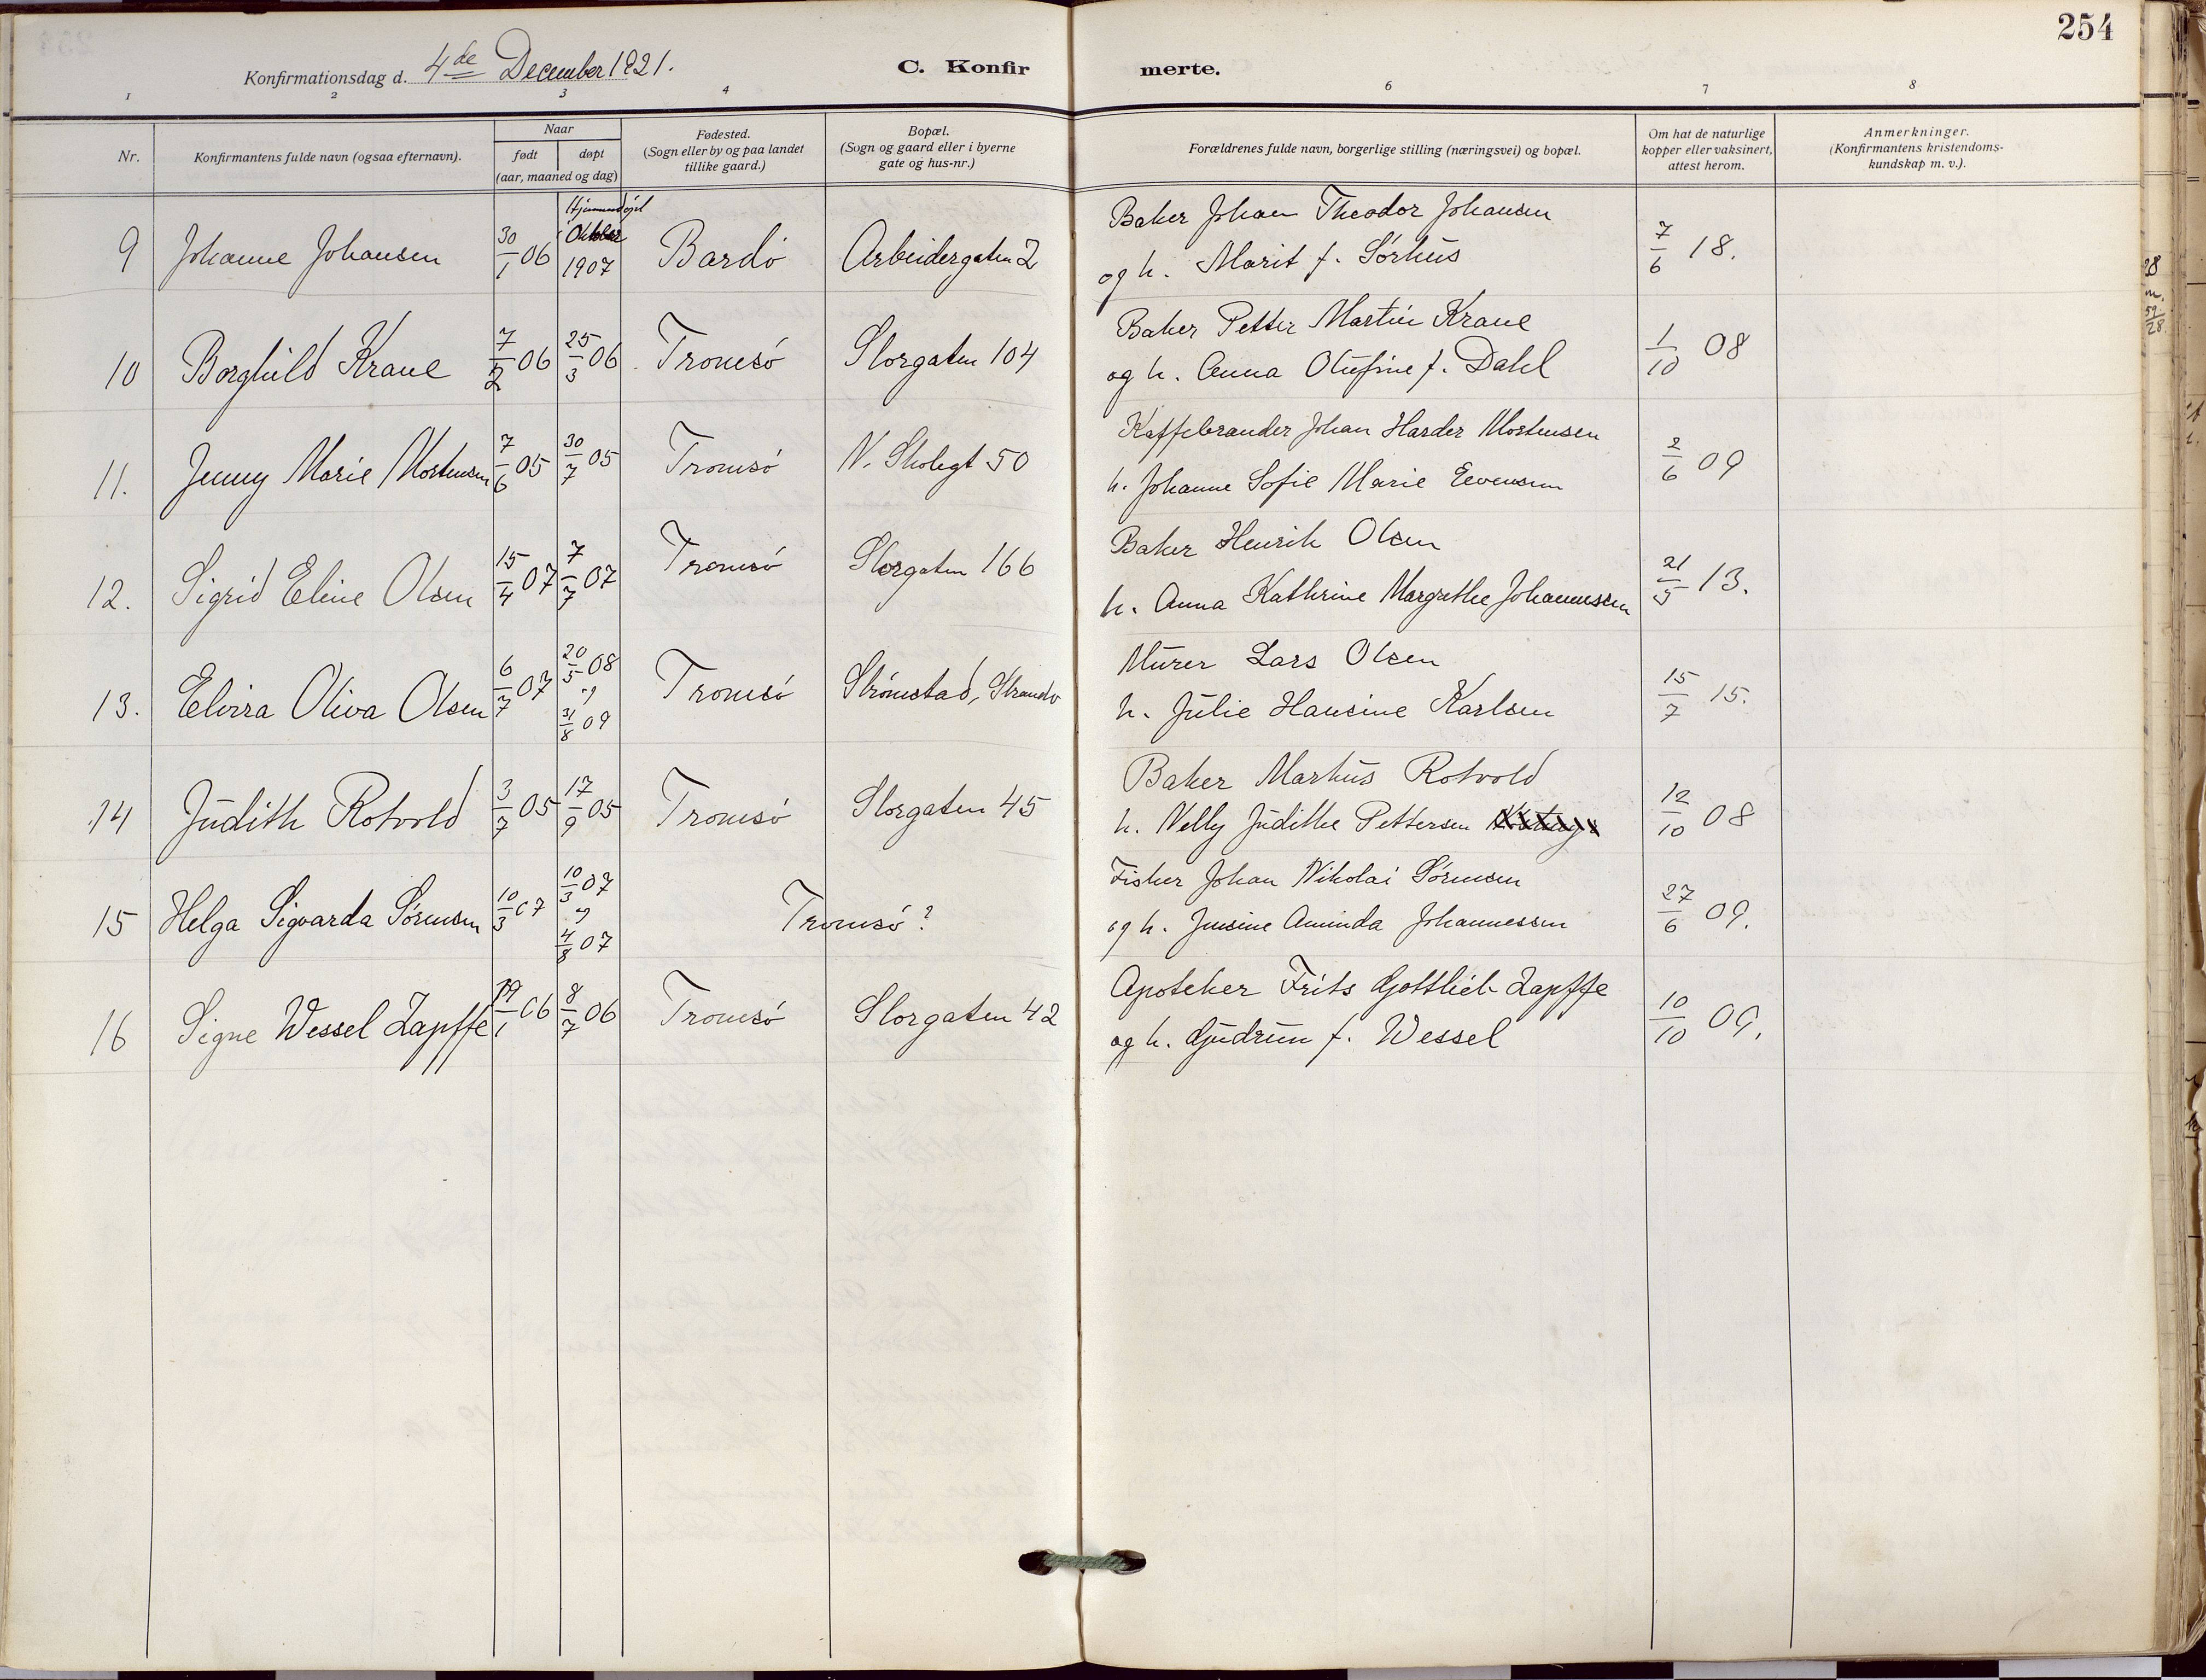 254
Konfirmationsdag d. 4de December 1921.
C. Konfirmerte.
1 2 3 4 6 7 8
Nr.
Konfirmantens fulde navn (ogsaa efternavn).
Naar
født
døpt
(aar, maaned og dag)
Fødested.
(Sogn eller by og paa landet
tillike gaard.)
Bopæl.
(Sogn og gaard eller i byerne
gate og hus-nr.)
Forældrenes fulde navn, borgerlige stilling (næringsvei) og bopæl.
Om hat de naturlige
kopper eller vaksinert,
attest herom.
Anmerkninger.
(Konfirmantens kristendoms-
kundskap m. v.).
9 Johanne Johansen 30/1 06 Hjemmedøpt i Oktober 1907 Bardø Arbeidergaten 2
Baker Johan Theodor Johansen
og h. Marit f. Sørhus
7/6 18.
10 Borghild Krane 7/2 06 25/3 06 Tromsø Storgaten 104
Baker Petter Martin Krane
og h. Anna Olufine f. Dahl
1/10 08
11. Jenny Marie Mortensen 7/6 05 30/7 05 Tromsø N. Skolegt 50
Kaffebrander Johan Harder Mortensen
h. Johanne Sofie Marie Evensen
2/6 09
12. Sigrid Eline Olsen 15/4 07 7/7 07 Tromsø Storgaten 166
Baker Henrik Olsen
h. Anna Kathrine Margrethe Johannessen
21/5 13.
13. Elvira Oliva Olsen 6/7 07 20/5 08 og 31/8 09 Tromsø Strømstad, Strandv
Murer Lars Olsen
h. Julie Hansine Karlsen
15/7 15.
14 Judith Rotvold 3/7 05 17/9 05 Tromsø Storgaten 45
Baker Markus Rotvold
h. Nelly Judithe Pettersen
12/10 08
15 Helga Sigvarda Sørensen 10/3 07 10/3 07 og 4/8 07 Tromsø?
Fisker Johan Nikolai Sørensen
og h. Jensine Aminda Johannessen
27/6 09.
16 Signe Wessel Zapffe 19/1 06 8/7 06 Tromsø Storgaten 42
Apoteker Frits Gottlieb Zapffe
og h. Gudrun f. Wessel
10/10 09.